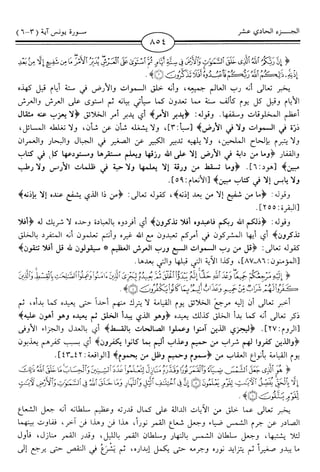 الجزء الحادي عشر
٨٥٤
سورة يونس آية (٣-٦)
﴿ إِنَّ رَبَّكُمُ اللَّهُ الَّذِي خَلَقَ السَّمَوَاتِ وَالْأَرْضَ فِي سِتَّةِ أَيَّامٍ ثُمَّ اسْتَوَى عَلَى الْعَرْشِ يُدَبِّرُ الْأَمْرَ مَا مِن شَفِيعٍ إِلَّا مِن بَعْدِ
إِذْنِهِ ذَلِكُمُ اللَّهُ رَبُّكُمْ فَاعْبُدُوهُ أَفَلَا تَذَكَّرُونَ ﴾.
يخبر تعالى أنه رب العالم جميعه، وأنه خلق السموات والأرض في ستة أيام قيل كهذه
الأيام وقيل كل يوم كألف سنة مما تعدون كما سيأتي بيانه ثم استوى على العرش والعرش
أعظم المخلوقات وسقفها. وقوله: ﴿يدبر الأمر﴾ أي يدبر أمر الخلائق ﴿لا يعزب عنه مثقال
ذرة في السموات ولا في الأرض﴾ [سبأ:٣]، ولا يشغله شأن عن شأن، ولا تغلطه المسائل،
ولا يتبرم بإلحاح الملحين، ولا يلهيه تدبير الكبير عن الصغير في الجبال والبحار والعمران
والقفار ﴿وما من دابة في الأرض إلا على الله رزقها ويعلم مستقرها ومستودعها كل في كتاب
مبين﴾ [هود:٦]. ﴿وما تسقط من ورقة إلا يعلمها ولا حبة في ظلمات الأرض ولا رطب
ولا يابس إلا في كتاب مبين﴾ [الأنعام:٥٩].
وقوله: ﴿ما من شفيع إلا من بعد إذنه﴾، كقوله تعالى: ﴿من ذا الذي يشفع عنده إلا بإذنه﴾
[البقرة:٢٥٥].
وقوله: ﴿ذلكم الله ربكم فاعبدوه أفلا تذكرون﴾ أي أفردوه بالعبادة وحده لا شريك له ﴿أفلا
تذكرون﴾ أي أيها المشركون في أمركم تعبدون مع الله غيره وأنتم تعلمون أنه المتفرد بالخلق
كقوله تعالى: ﴿قل من رب السموات السبع ورب العرش العظيم * سيقولون لله قل أفلا تتقون﴾
[المؤمنون:٨٦،٨٧]، وكذا الآية التي قبلها والتي بعدها.
﴿ إِلَيْهِ مَرْجِعُكُمْ جَمِيعًا وَعْدَ اللَّهِ حَقًّا إِنَّهُ يَبْدَأُ الْخَلْقَ ثُمَّ يُعِيدُهُ لِيَجْزِيَ الَّذِينَ آمَنُوا وَعَمِلُوا الصَّالِحَاتِ بِالْقِسْطِ وَالَّذِينَ
كَفَرُوا لَهُمْ شَرَابٌ مِنْ حَمِيمٍ وَعَذَابٌ أَلِيمٌ بِمَا كَانُوا يَكْفُرُونَ ﴾.
أخبر تعالى أن إليه مرجع الخلائق يوم القيامة لا يترك منهم أحداً حتى يعيده كما بدأه، ثم
ذكر تعالى أنه كما بدأ الخلق كذلك يعيده ﴿وهو الذي يبدأ الخلق ثم يعيده وهو أهون عليه﴾
[الروم:٢٧]. ﴿ليجزي الذين آمنوا وعملوا الصالحات بالقسط﴾ أي بالعدل والجزاء الأوفى
﴿والذين كفروا لهم شراب من حميم وعذاب أليم بما كانوا يكفرون﴾ أي بسبب كفرهم يعذبون
يوم القيامة بأنواع العقاب من ﴿سموم وحميم وظل من يحموم﴾ [الواقعة:٤٢،٤٣].
﴿ هُوَ الَّذِي جَعَلَ الشَّمْسَ ضِيَاءً وَالْقَمَرَ نُورًا وَقَدَّرَهُ مَنَازِلَ لِتَعْلَمُوا عَدَدَ السِّنِينَ وَالْحِسَابَ مَا خَلَقَ اللَّهُ ذَلِكَ
إِلَّا بِالْحَقِّ يُفَصِّلُ الْآيَاتِ لِقَوْمٍ يَعْلَمُونَ إِنَّ فِي اخْتِلَافِ اللَّيْلِ وَالنَّهَارِ وَمَا خَلَقَ اللَّهُ فِي السَّمَوَاتِ وَالْأَرْضِ لَآيَاتٍ
لِقَوْمٍ يَتَّقُونَ ﴾.
يخبر تعالى عما خلق من الآيات الدالة على كمال قدرته وعظيم سلطانه أنه جعل الشعاع
الصادر عن جرم الشمس ضياء، وجعل شعاع القمر نوراً، هذا فن وهذا فن آخر، ففاوت بينهما
لئلا يشتبها، وجعل سلطان الشمس بالنهار وسلطان القمر بالليل، وقدر القمر منازل، فأول
ما يبدو صغيراً ثم يتزايد نوره وجرمه حتى يكمل إبداره، ثم يشرع في النقص حتى يرجع إلى